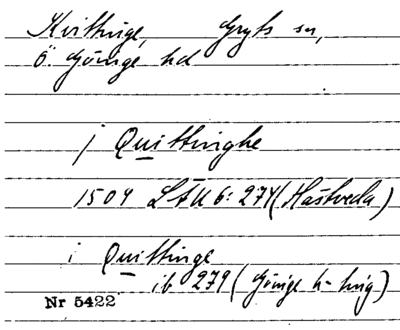 Kvittinge, Gryts sn,
Ö. Göinge hd
j Quittinghe
1504 LÄU 6: 274 (Hästveda)
i Quittinge
ib 279 (Göinge h-ting)
Nr 5422